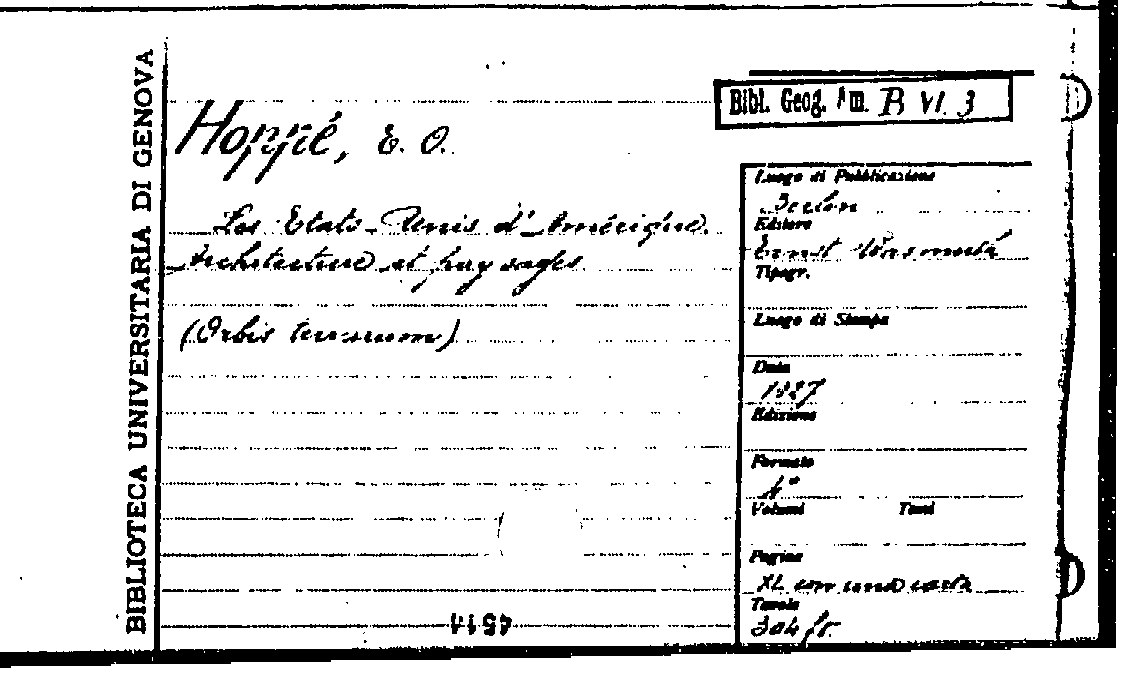 BIBLIOTECA UNIVERSITARIA DI GENOVA
Bibl. Geog. Am. B VI. 3
Hoppé, E. O.
Les Etats-Unis d'Amérique.
Architecture et paysages
(Orbis terrarum)
Luogo di Pubblicazione
Berlin
Editore
Ernst Wasmuth
Tipogr.
Luogo di Stampa
Data
1927
Edizione
Formato
4°
Volumi Tomi
Pagine
XL con una carta
Tavole
304 ft.
4514